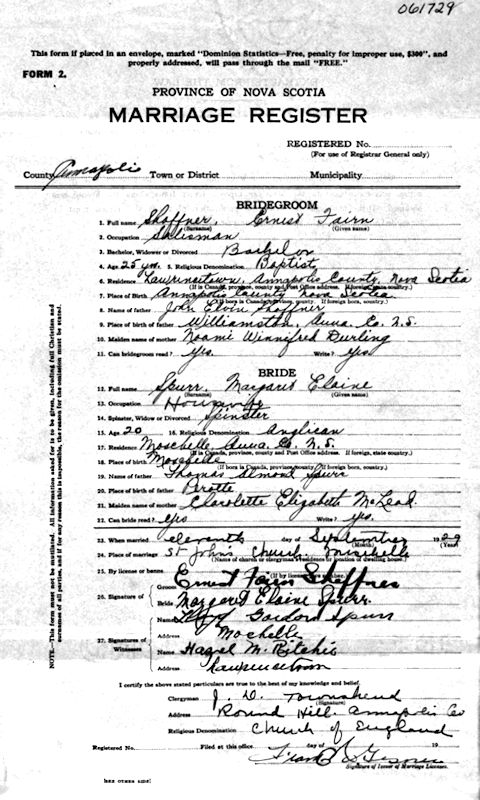 061729
This form if placed in an envelope, marked "Dominion Statistics—Free, penalty for improper use, $300", and
properly addressed, will pass through the mail "FREE."
FORM 2.
PROVINCE OF NOVA SCOTIA
MARRIAGE REGISTER
REGISTERED No.
(For use of Registrar General only)
County Annapolis Town or District Municipality
BRIDEGROOM
1. Full name Shaffner, Ernest Fairn
(Surname) (Given name)
2. Occupation Salesman
3. Bachelor, Widower or Divorced Bachelor
4. Age 25 yrs. 5. Religious Denomination Baptist
6. Residence Lawrencetown, Annapolis County, Nova Scotia
(If in Canada, province, county and Post Office address. If foreign, state country.)
7. Place of Birth Annapolis County Nova Scotia
(If born in Canada, province, county. If foreign born, country.)
8. Name of father John Elvin Shaffner
9. Place of birth of father Williamston, Anna. Co. N.S.
10. Maiden name of mother Naomi Winnifred Durling
11. Can bridegroom read? Yes. Write? Yes
BRIDE
12. Full name Spurr, Margaret Elaine
(Surname) (Given name)
13. Occupation Housewife
14. Spinster, Widow or Divorced Spinster
15. Age 20 16. Religious Denomination Anglican
17. Residence Moschelle, Anna. Co. N.S.
(If in Canada, province, county and Post Office address. If foreign, state country.)
18. Place of birth Moschelle
(If born in Canada, province, county. If foreign born, country.)
19. Name of father Thomas Almont Spurr
20. Place of birth of father
21. Maiden name of mother Elizabeth McLead
22. Can bride read? Yes Write? Yes.
23. When married eleventh day of September 1929
(Month) (Year)
24. Place of marriage St John's Church Moschelle
(Name of church or clergyman's residence or location of dwelling house)
25. By license or banns
(If by license give number.)
26. Signature of
Groom Ernest Fairn Shaffner
Bride Margaret Elaine Spurr.
27. Signatures of Witnesses
Name Gordon Spurr
Address Mochelle
Name Hazel M. Ritchie
Address Lawrencetown
I certify the above stated particulars are true to the best of my knowledge and belief.
Clergyman J. D. Townshend
(Signature)
Address Round Hill Annapolis Co
Religious Denomination Church of England
Registered No. Filed at this office day of 19
Signature of Issuer of Marriage Licenses.
SEE OTHER SIDE
NOTE.—This form must not be mutilated. All information asked for is to be given, including full Christian and
surnames of all parties, and if for any reason this is impossible, the reason for the omission must be stated.